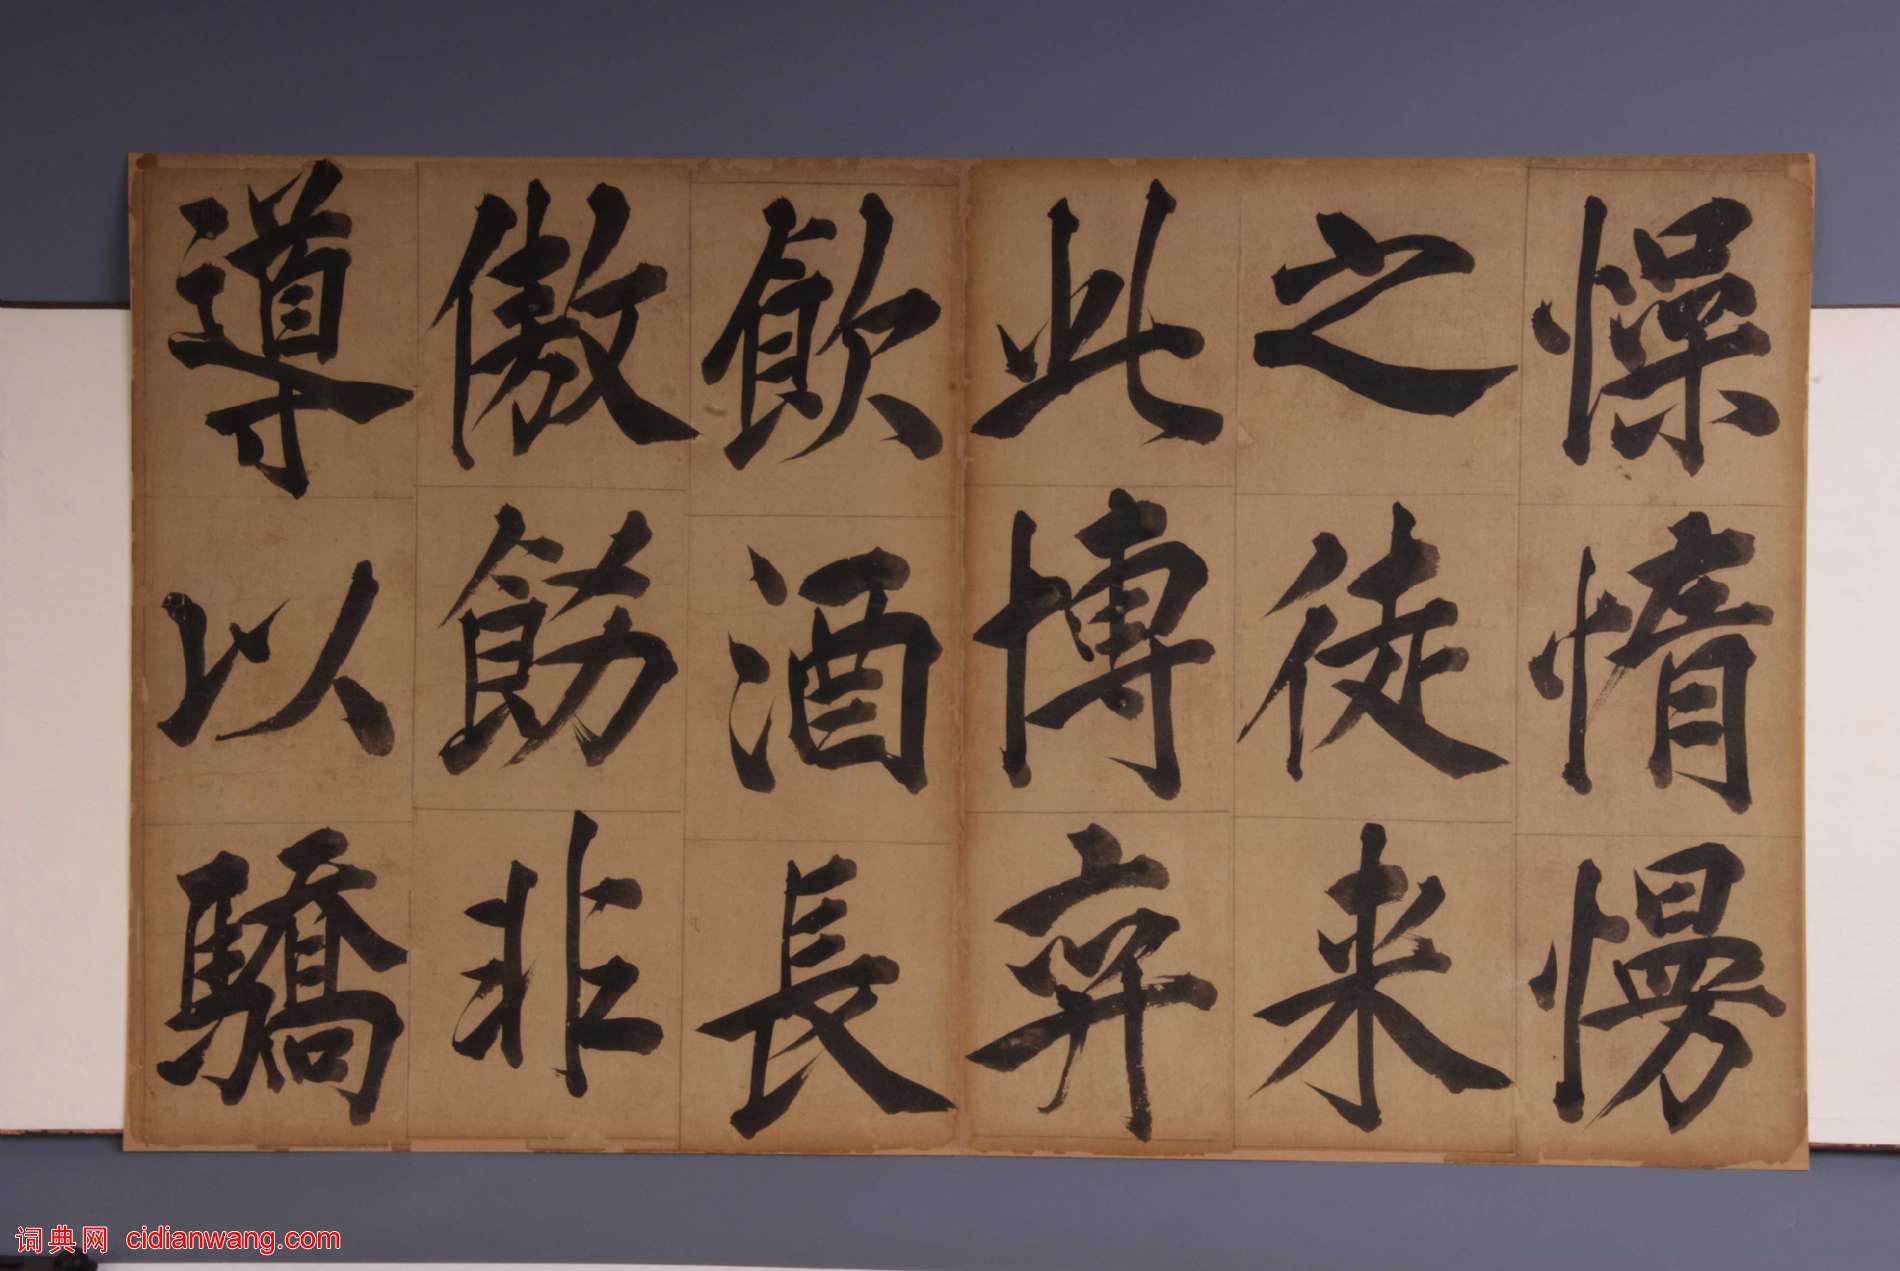 懆惰慢
之徒来
此博弈
飲酒長
傲餝非
導以驕
词典网 cidianwang.com